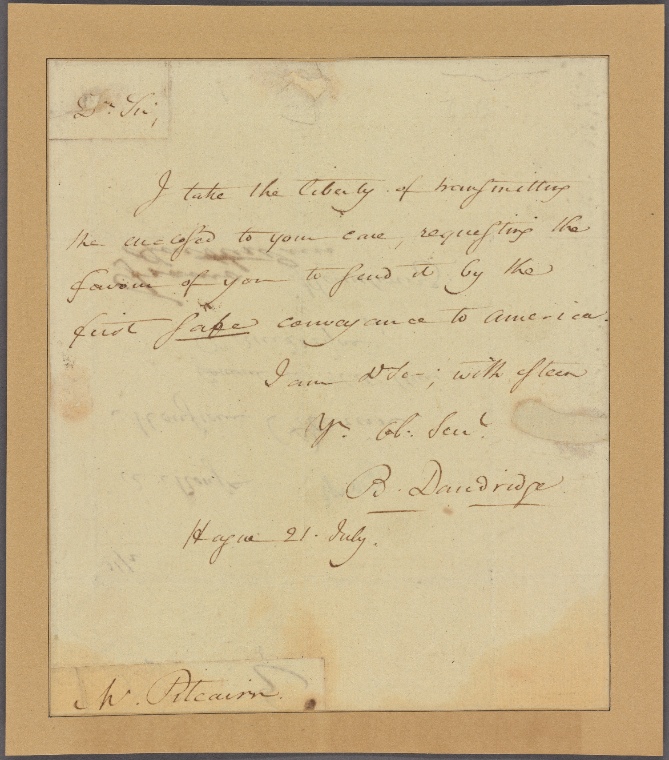 Dr. Sir,
I take the liberty of transmitting
the enclosed to your care, requesting the
favour of you to send it by the
first safe conveyance to America.
I am D Sr; with esteem
Yr. ob. Servt.
B. Dandridge
Hague 21. July.
Mr. Pitcairn.